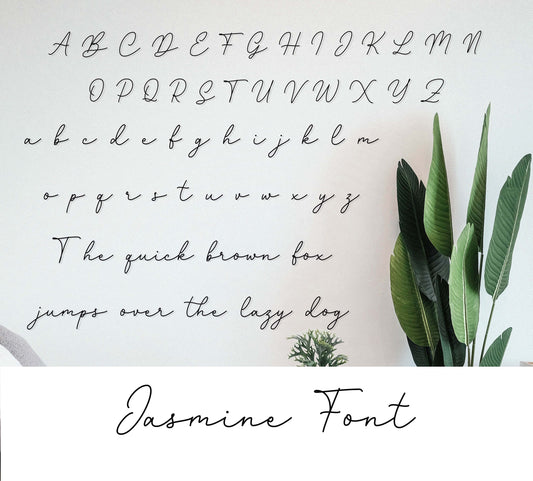 A B C D E F G H I J K L M N
O P Q R S T U V W X Y Z
a b c d e f g h i j k l m
o p q r s t u v w x y z
The quick brown fox
jumps over the lazy dog
Jasmine Font